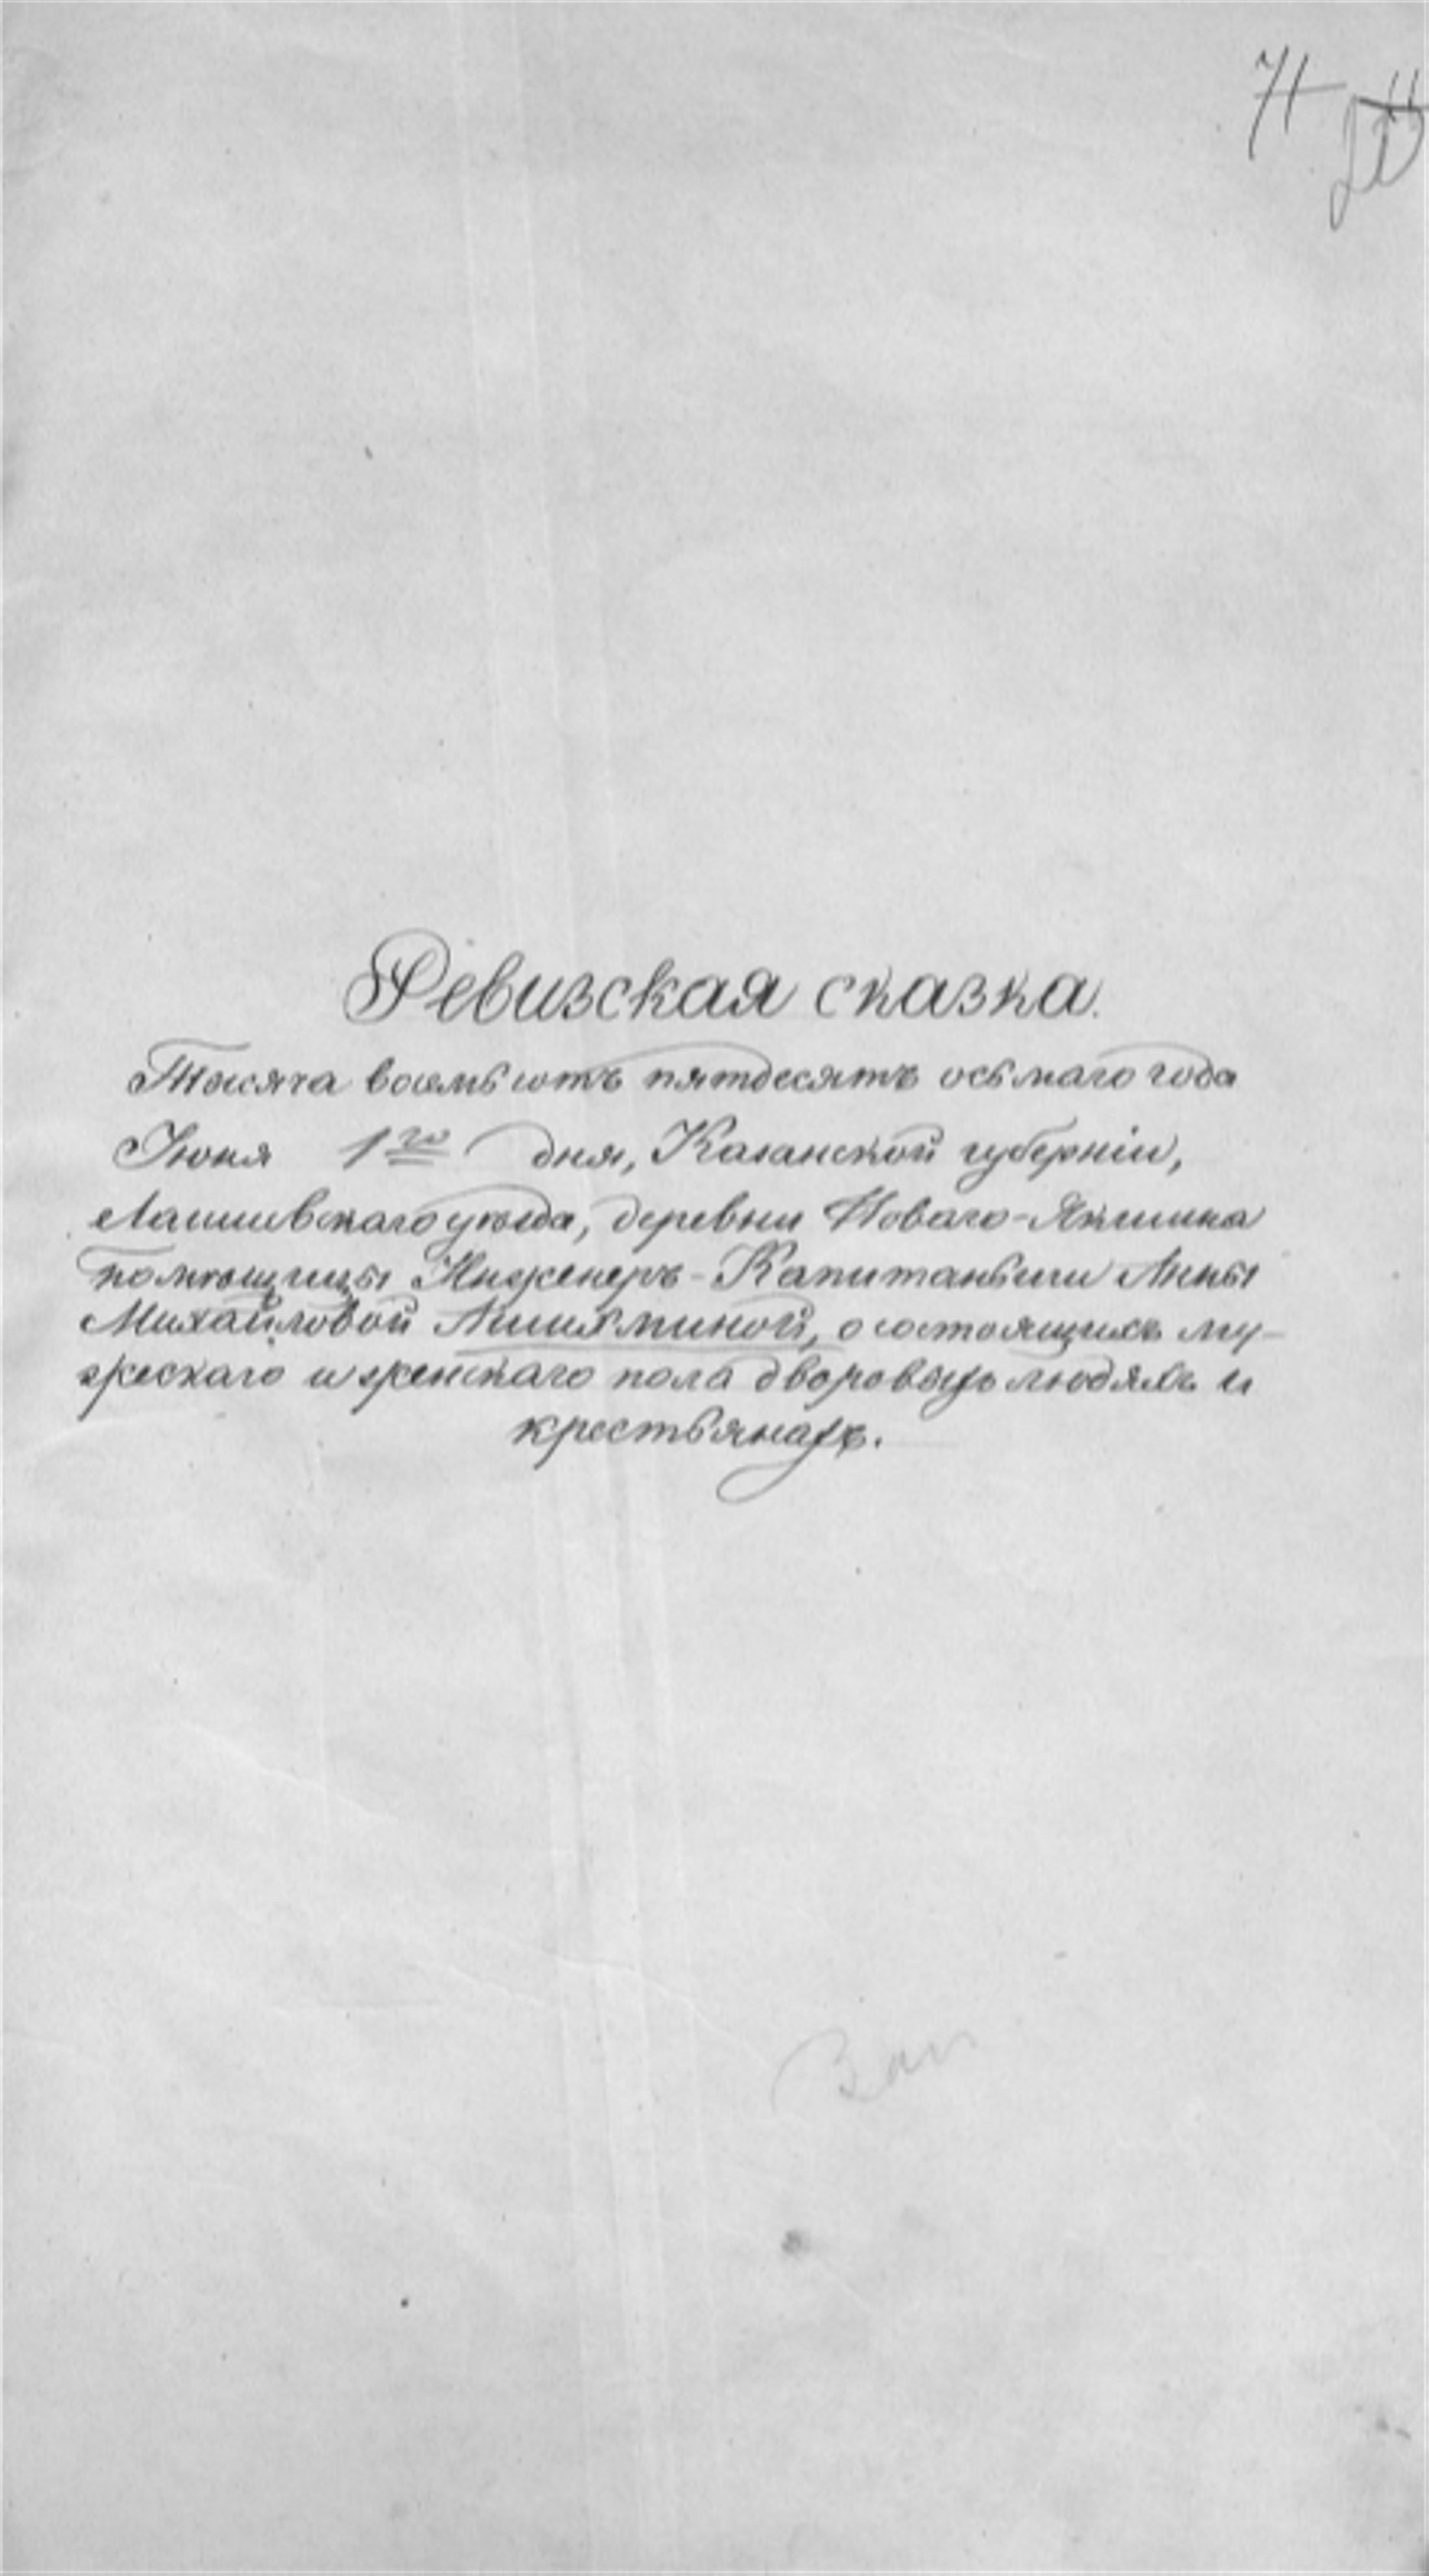 71
Ревизская сказка.
Тысяча восемьсотъ пятдесятъ осьмаго года
Июня 1го дня, Казанской губерніи,
Лаишевскаго уѣзда, деревни Новаго-Якшина
помѣщицы Инженеръ-Капитанши Анны
Михайловой, о состоящихъ му-
жескаго и женскаго пола дворовыхъ людяхъ и
крестьянахъ.